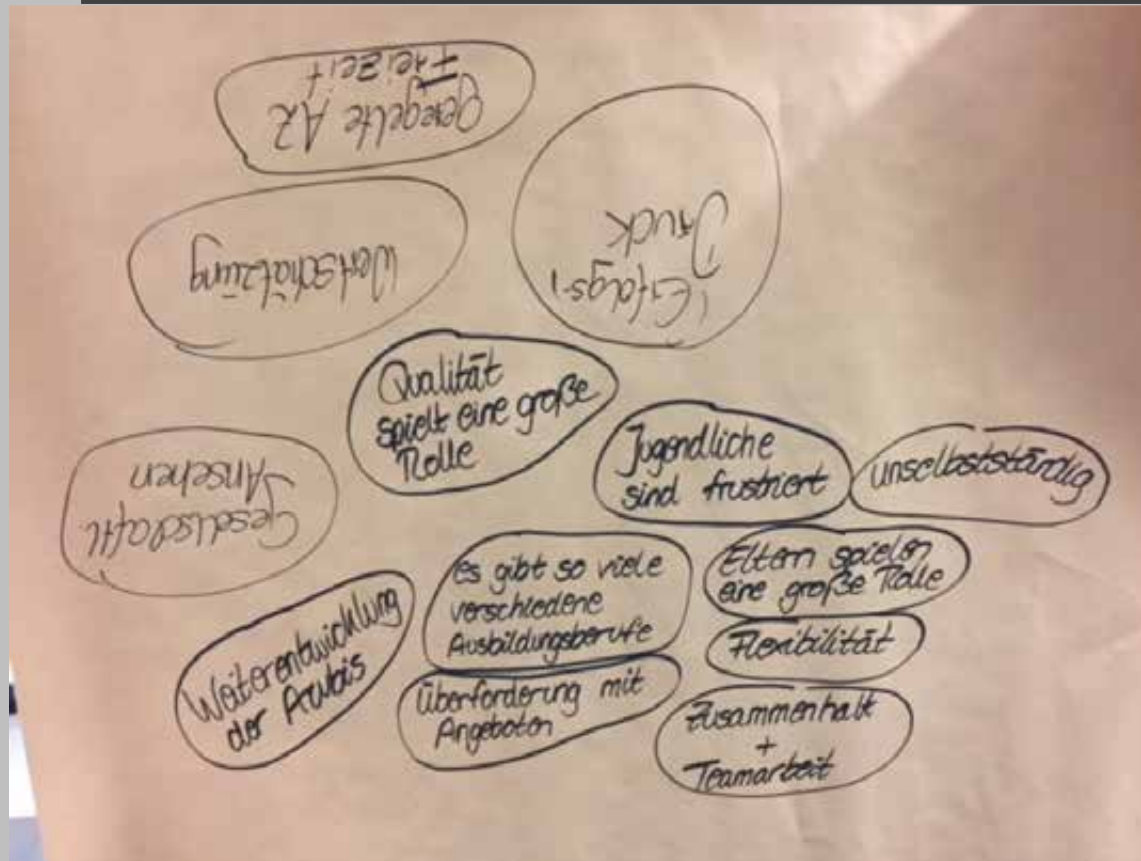 Geregelte AZ
Freizeit
Wertschätzung
Erfolgs-
Druck
Gesellschaftl.
Ansehen
Qualität
spielt eine große
Rolle
Jugendliche
sind frustriert
unselbstständig
es gibt so viele
verschiedene
Ausbildungsberufe
Eltern spielen
eine große Rolle
Flexibilität
Weiterentwicklung
der Azubis
Überforderung mit
Angeboten
Zusammenhalt
+
Teamarbeit